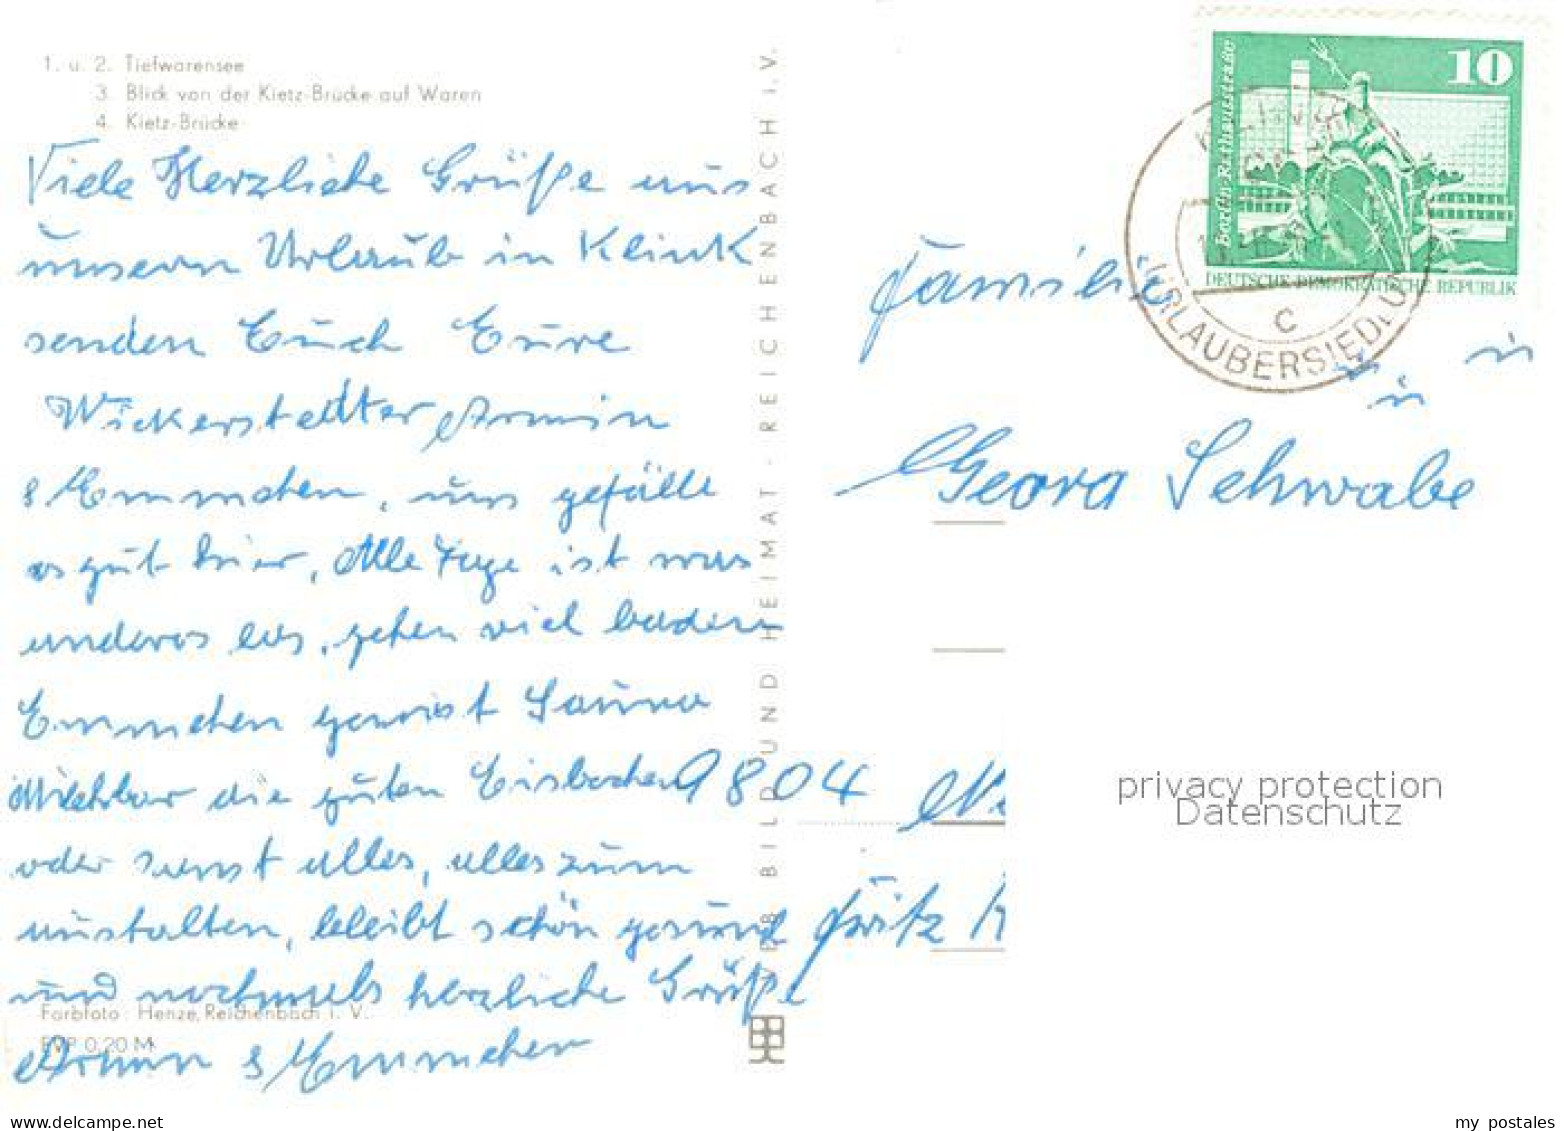 1. u. 2. Tiefwarensee
3. Blick von der Kietz-Brücke auf Waren
4. Kietz-Brücke
Viele Herzliche Grüße aus
unsern Urlaub in Klink
senden Euch Eure
Wickerstedter Armin
& Emmchen, uns gefällt
es gut hier, Alle Tage ist was
anderes los, gehen viel baden
Emmchen genießt Sauna
Milchbar die guten Eisbecher
oder sonst alles, alles zum
aushalten, bleibt schön gesund
und nochmals herzliche Grüße
Armin & Emmchen
Farbfoto: Henze, Reichenbach i. V.
EVP 0,20 M
VEB BILD UND HEIMAT · REICHENBACH i. V.
10
Berlin-Rathausstraße
DEUTSCHE DEMOKRATISCHE REPUBLIK
C
URLAUBERSIEDLU
Familie
Georg Schwabe
9804
Fritz
privacy protection
Datenschutz
my postales